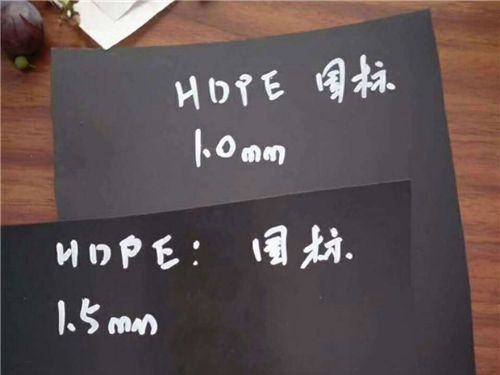 HDPE 国标
1.0mm
HDPE: 国标.
1.5mm